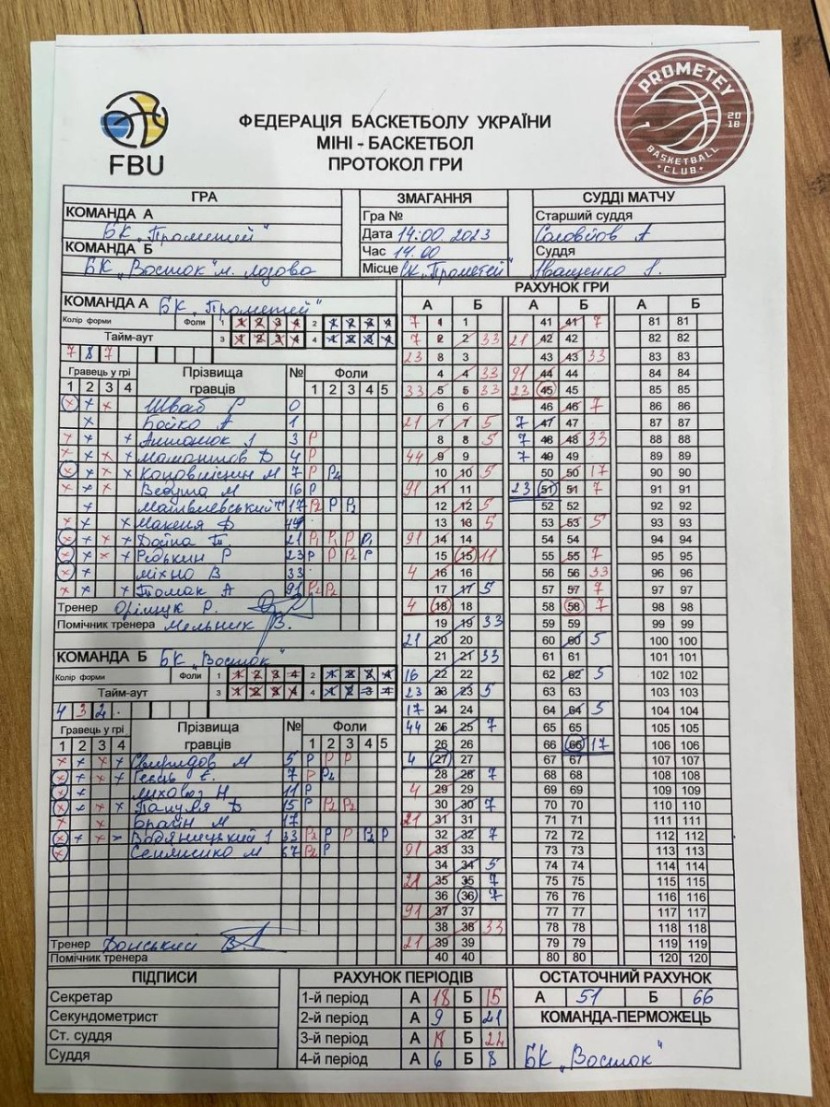 FBU
ФЕДЕРАЦІЯ БАСКЕТБОЛУ УКРАЇНИ
МІНІ - БАСКЕТБОЛ
ПРОТОКОЛ ГРИ
PROMETEY
2018
BASKETBALL
CLUB
ГРА
КОМАНДА А
БК „Прометей"
КОМАНДА Б
БК „Восток" м. Лозова
ЗМАГАННЯ
Гра №
Дата 14.00. 2023
Час 14.00
Місце СК „Прометей"
СУДДІ МАТЧУ
Старший суддя
Соловйов А
Суддя
Іващенко
КОМАНДА А БК „Прометей"
Колір форми Фоли 1 1 2 3 4 2 1 2 3 4
Тайм-аут 3 1 2 3 4 4 1 2 3 4
7 8 7
Гравець у грі Прізвища гравців № Фоли
1 2 3 4 1 2 3 4 5
Шваб Р 0
Бойко А 1
Антонюк І 3 Р
Мамонтов Д 4 Р
М 7 Р Р2
М 16 Р
17 Р2 Р Р2
Макеня Ф
Бойна 21 Р1 Р1 Р Р1
Редькин Р 23 Р Р Р2 Р
Міхно В 33
А 91 Р2 Р2
Тренер Р.
Помічник тренера Мельник В.
КОМАНДА Б БК „Восток"
Колір форми Фоли 1 1 2 3 4 2 1 2 3 4
Тайм-аут 3 1 2 3 4 4 1 2 3 4
4 3 2
Гравець у грі Прізвища гравців № Фоли
1 2 3 4 1 2 3 4 5
Свиридов М 5 Р Р Р
7 Р Р2
Лиховоз Н 11 Р
Пацуля Д 15 Р Р2 Р2
Брагін М 17
Водяницький І 33 Р2 Р Р Р2 Р
М 67 Р2 Р
Тренер Донський
Помічник тренера
РАХУНОК ГРИ
А Б А Б А Б
7 1 1 41 41 7 81 81
7 2 2 33 21 42 42 82 82
23 3 3 43 43 33 83 83
4 4 33 91 44 44 84 84
33 5 5 33 23 45 45 85 85
6 6 46 46 7 86 86
21 7 7 5 7 47 47 87 87
8 8 5 7 48 48 33 88 88
44 9 9 7 49 49 89 89
10 10 5 50 50 17 90 90
91 11 11 23 51 51 7 91 91
12 12 5 52 52 92 92
13 13 5 53 53 5 93 93
91 14 14 54 54 94 94
15 15 11 55 55 7 95 95
4 16 16 56 56 33 96 96
17 17 5 57 57 7 97 97
4 18 18 58 58 7 98 98
19 19 33 59 59 99 99
21 20 20 60 60 5 100 100
21 21 33 61 61 101 101
16 22 22 62 62 5 102 102
23 23 23 5 63 63 103 103
17 24 24 64 64 5 104 104
44 25 25 7 65 65 105 105
26 26 66 66 17 106 106
4 27 27 67 67 107 107
28 28 7 68 68 108 108
4 29 29 69 69 109 109
30 30 7 70 70 110 110
21 31 31 71 71 111 111
32 32 7 72 72 112 112
91 33 33 73 73 113 113
34 34 5 74 74 114 114
21 35 35 7 75 75 115 115
36 36 7 76 76 116 116
91 37 37 77 77 117 117
38 38 33 78 78 118 118
21 39 39 79 79 119 119
40 40 80 80 120 120
ПІДПИСИ
Секретар
Секундометрист
Ст. суддя
Суддя
РАХУНОК ПЕРІОДІВ
1-й період А 18 Б 15
2-й період А 9 Б 21
3-й період А Б 22
4-й період А 6 Б 8
ОСТАТОЧНИЙ РАХУНОК
А 51 Б 66
КОМАНДА-ПЕРМОЖЕЦЬ
БК „Восток"